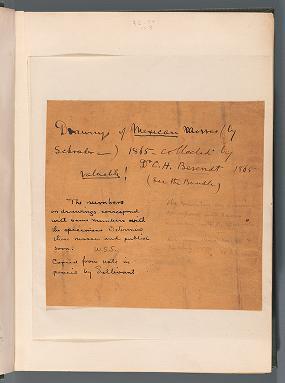 Drawings of Mexican Mosses (by
Schrader) 1865 collected by
Dr C. H. Berendt 1865
valuable!
(see the Bundle)
The numbers
on drawings correspond
with same numbers with
the specimens Determine
these mosses and publish
soon. W.S.S.
Copied from note in
pencil by Sullivant